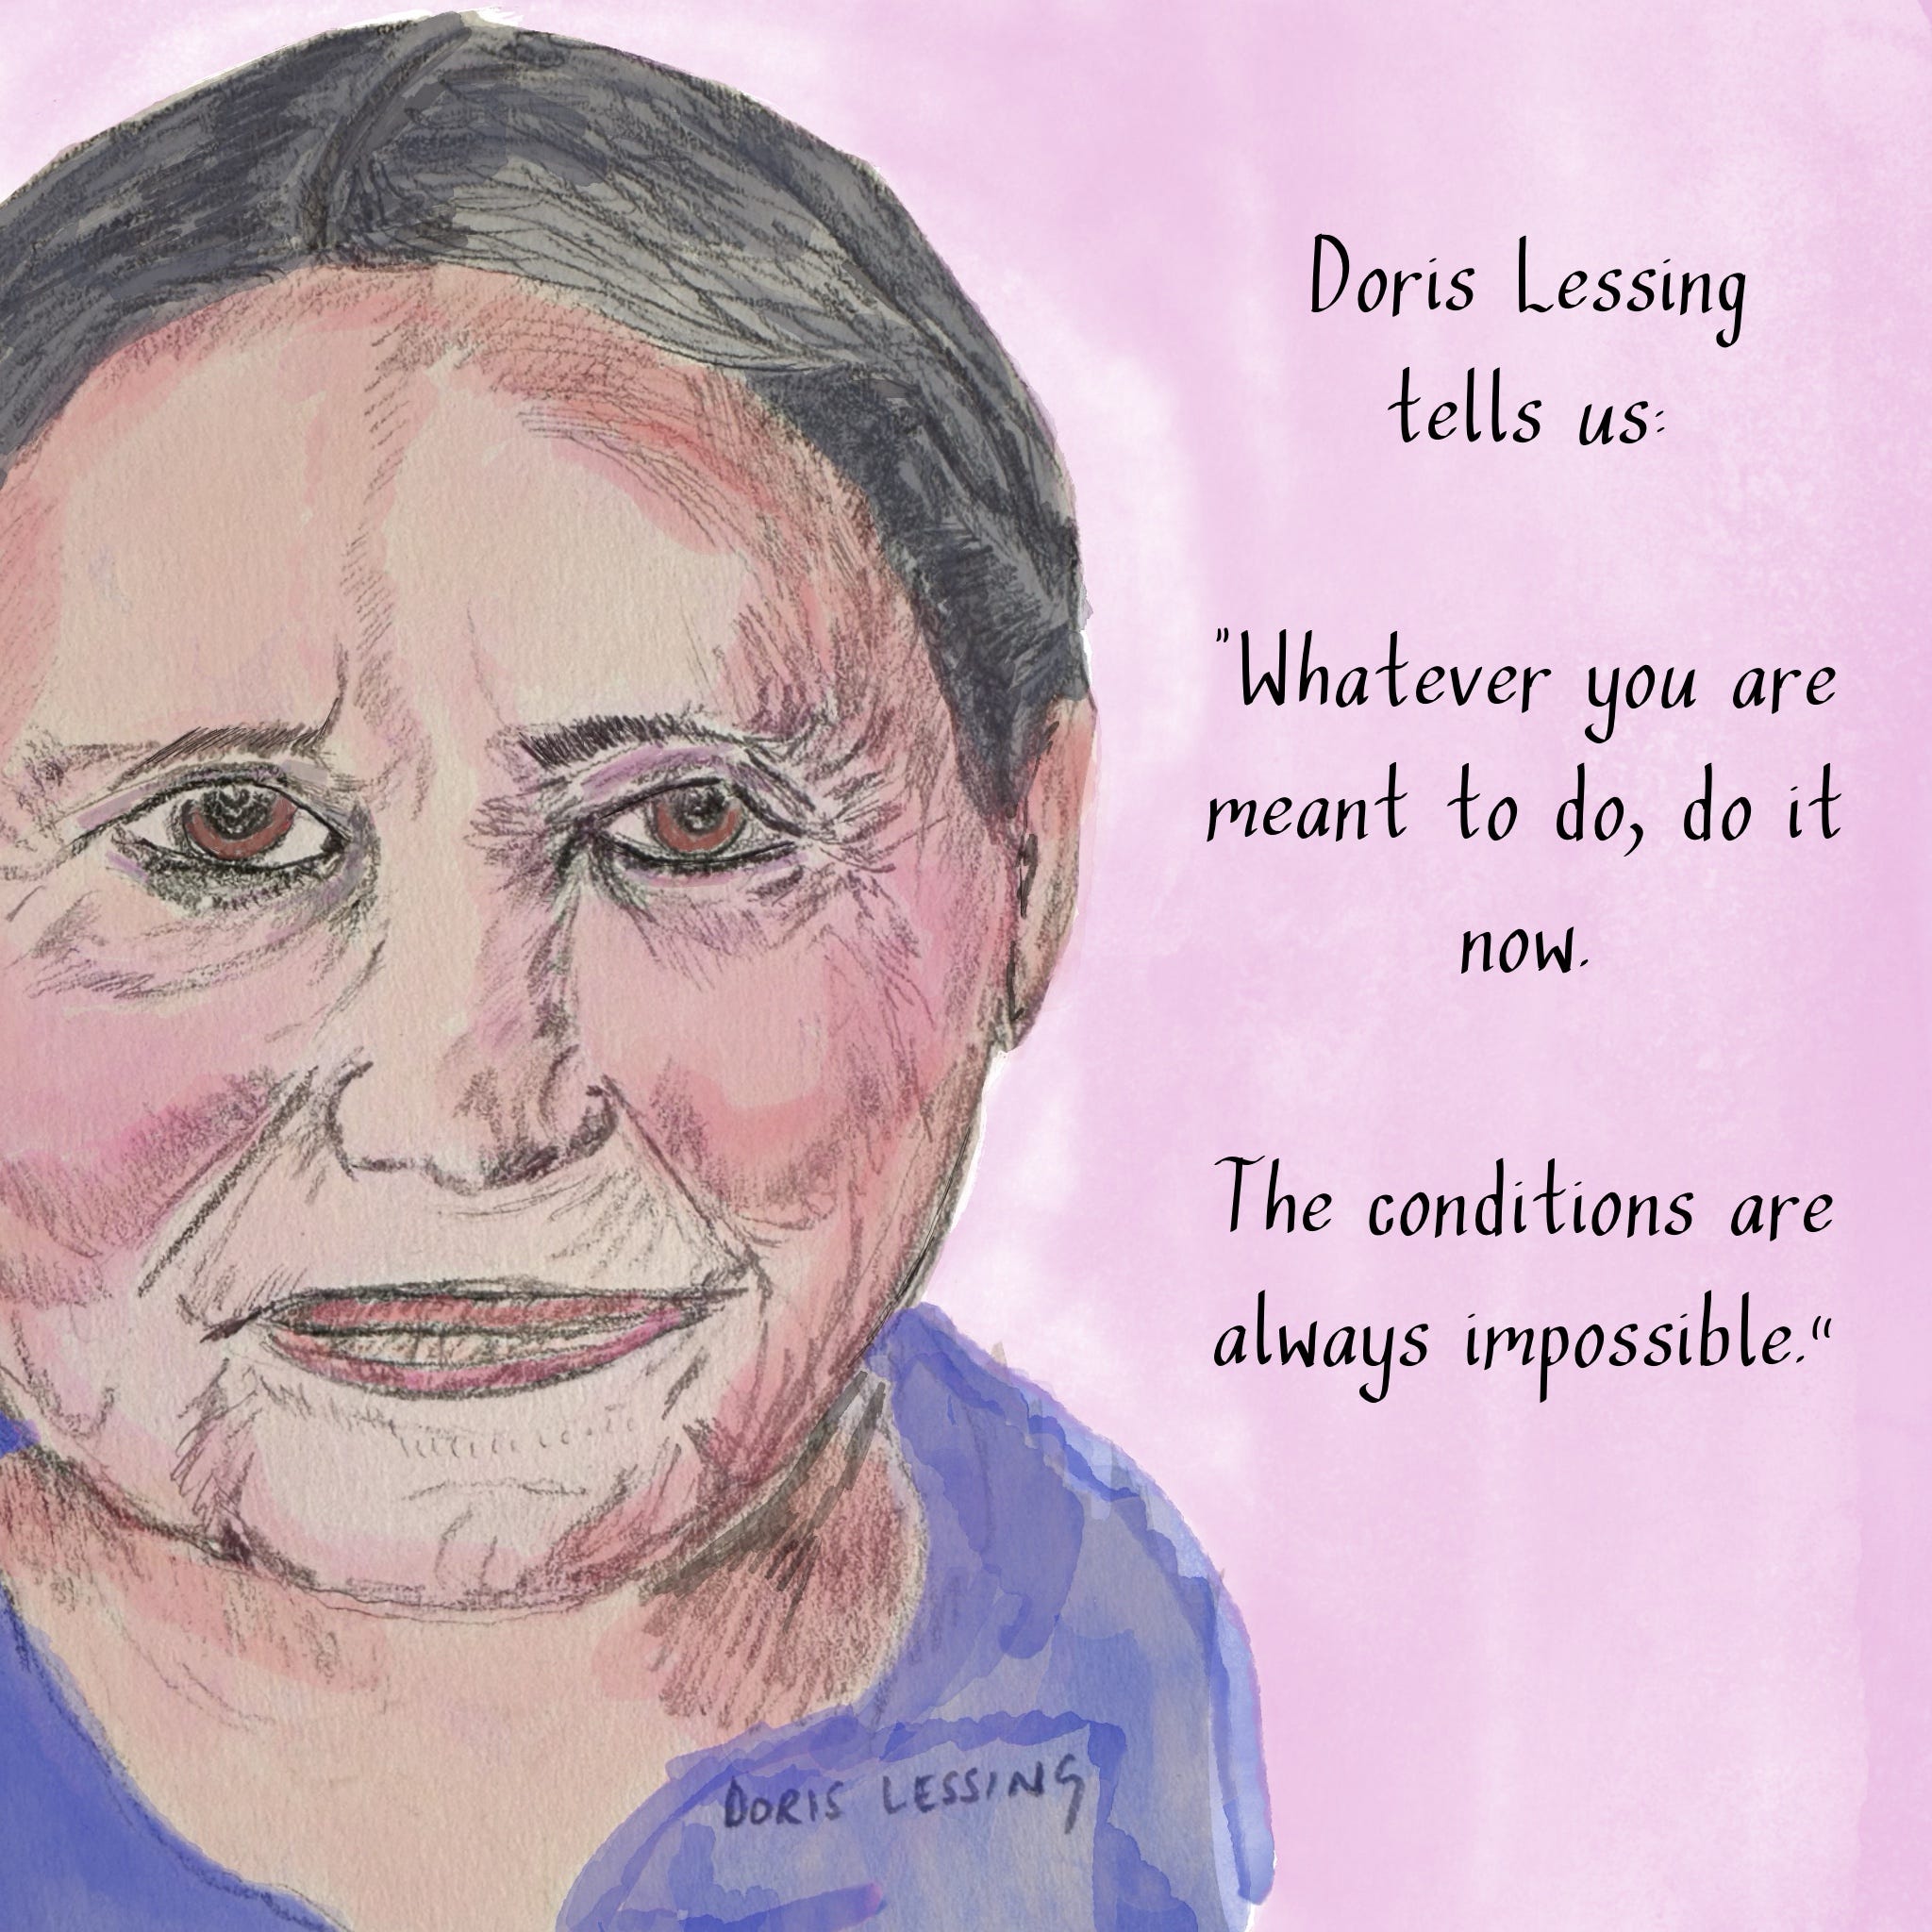 Doris Lessing
tells us:
"Whatever you are
meant to do, do it
now.
The conditions are
always impossible."
DORIS LESSING